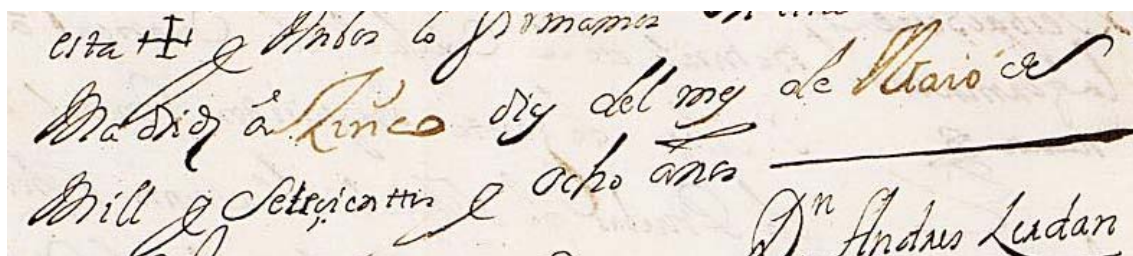 esta ✝ y Ambos lo firmamos en
Madrid a Zinco dias del mes de Maio de
Mill y Seteçientos y ocho años
Dn Andres